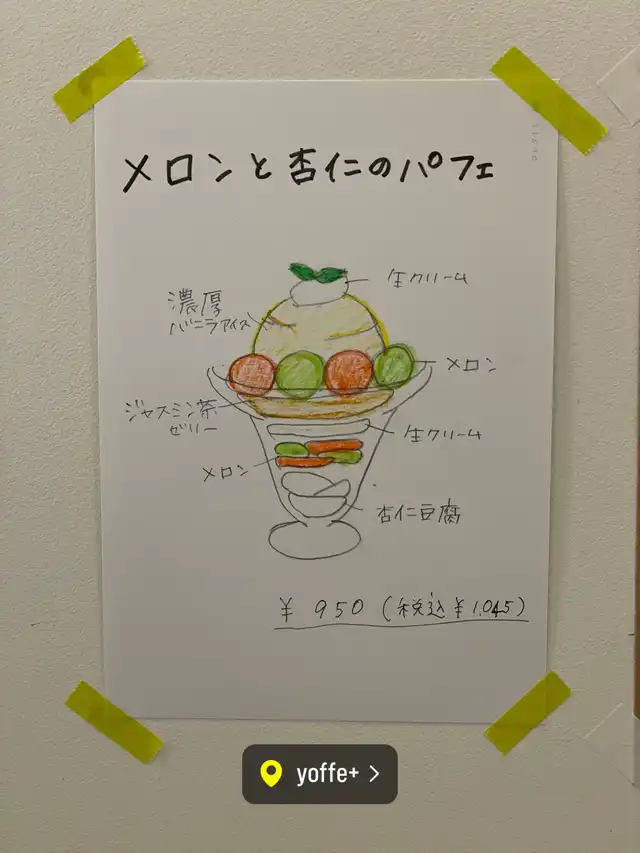 メロンと杏仁のパフェ
生クリーム
濃厚
バニラアイス
メロン
ジャスミン茶
ゼリー
生クリーム
メロン
杏仁豆腐
¥ 950 (税込¥1,045)
yoffe+